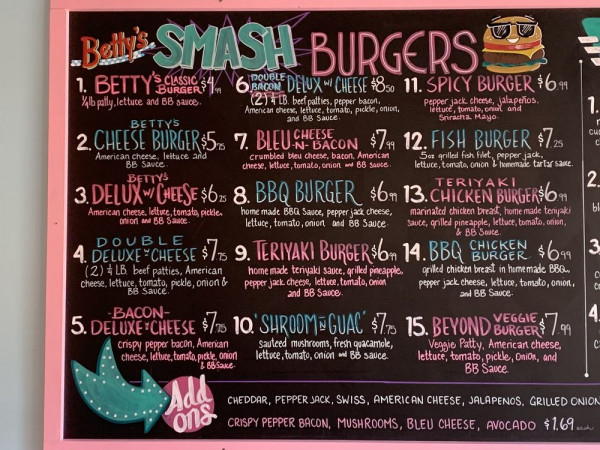 Betty's SMASH BURGERS
1. BETTY'S CLASSIC BURGER $4.99
1/4lb patty, lettuce and BB sauce.
2. BETTY'S CHEESE BURGER $5.75
American cheese, lettuce and
BB Sauce.
3. BETTY'S DELUX W/ CHEESE $6.25
American cheese, lettuce, tomato, pickle,
onion and BB Sauce.
4. DOUBLE DELUXE W/ CHEESE $7.75
(2) 1/4 LB. beef patties, American
cheese, lettuce, tomato, pickle, onion &
BB Sauce.
5. -BACON- DELUXE W/ CHEESE $7.75
crispy pepper bacon, American
cheese, lettuce, tomato, pickle, onion
& BB Sauce.
6. DOUBLE BACON DELUX W/ CHEESE $8.50
(2) 1/4 LB. beef patties, pepper bacon,
American cheese, lettuce, tomato, pickle, onion,
and BB Sauce.
7. BLEU CHEESE -N- BACON $7.99
crumbled bleu cheese, bacon, American
cheese, lettuce, tomato, onion and BB Sauce.
8. BBQ BURGER $6.99
home made BBQ Sauce, pepper jack cheese,
lettuce, tomato, onion, and BB Sauce.
9. TERIYAKI BURGER $6.99
home made teriyaki sauce, grilled pineapple,
pepper jack cheese, lettuce, tomato, onion
and BB Sauce.
10. 'SHROOM N GUAC' $7.75
sauteed mushrooms, fresh guacamole,
lettuce, tomato, onion and BB Sauce.
11. SPICY BURGER $6.99
pepper jack cheese, jalapeños,
lettuce, tomato, onion, and
Sriracha Mayo.
12. FISH BURGER $7.25
5oz grilled fish filet, pepper jack,
lettuce, tomato, onion & homemade tartar sauce.
13. TERIYAKI CHICKEN BURGER $6.99
marinated chicken breast, home made teriyaki
sauce, grilled pineapple, lettuce, tomato, onion,
& BB Sauce.
14. BBQ CHICKEN BURGER $6.99
grilled chicken breast in homemade BBQ,
pepper jack cheese, lettuce, tomato, onion,
and BB Sauce.
15. BEYOND VEGGIE BURGER $7.99
Veggie Patty, American cheese,
lettuce, tomato, pickle, Onion, and
BB Sauce.
Add ons
CHEDDAR, PEPPER JACK, SWISS, AMERICAN CHEESE, JALAPENOS, GRILLED ONION
CRISPY PEPPER BACON, MUSHROOMS, BLEU CHEESE, AVOCADO $1.69 each
1.
2.
3.
4.